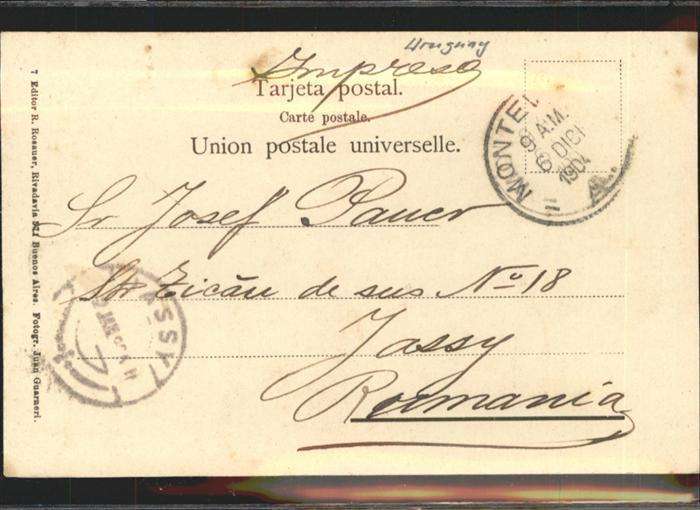 Uruguay
Impreso
Tarjeta postal.
Carte postale.
Union postale universelle.
MONTE
9 A.M.
6 DICI
1904
Sr Josef Pauer
Str Zicău de sus No 18
Jassy
Romania
ASSY
JAN
7 Editor R. Rosauer, Rivadavia 571 Buenos Aires. Fotogr. Juan Guarneri.